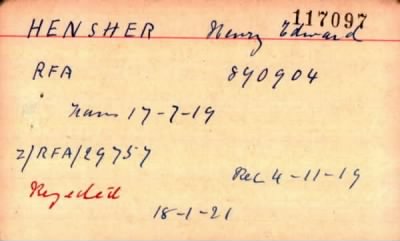 117097
HENSHER Henry Edward
RFA 890904
Trans 17-7-19
2/RFA/29757
Rec 4-11-19
Rejected
18-1-21